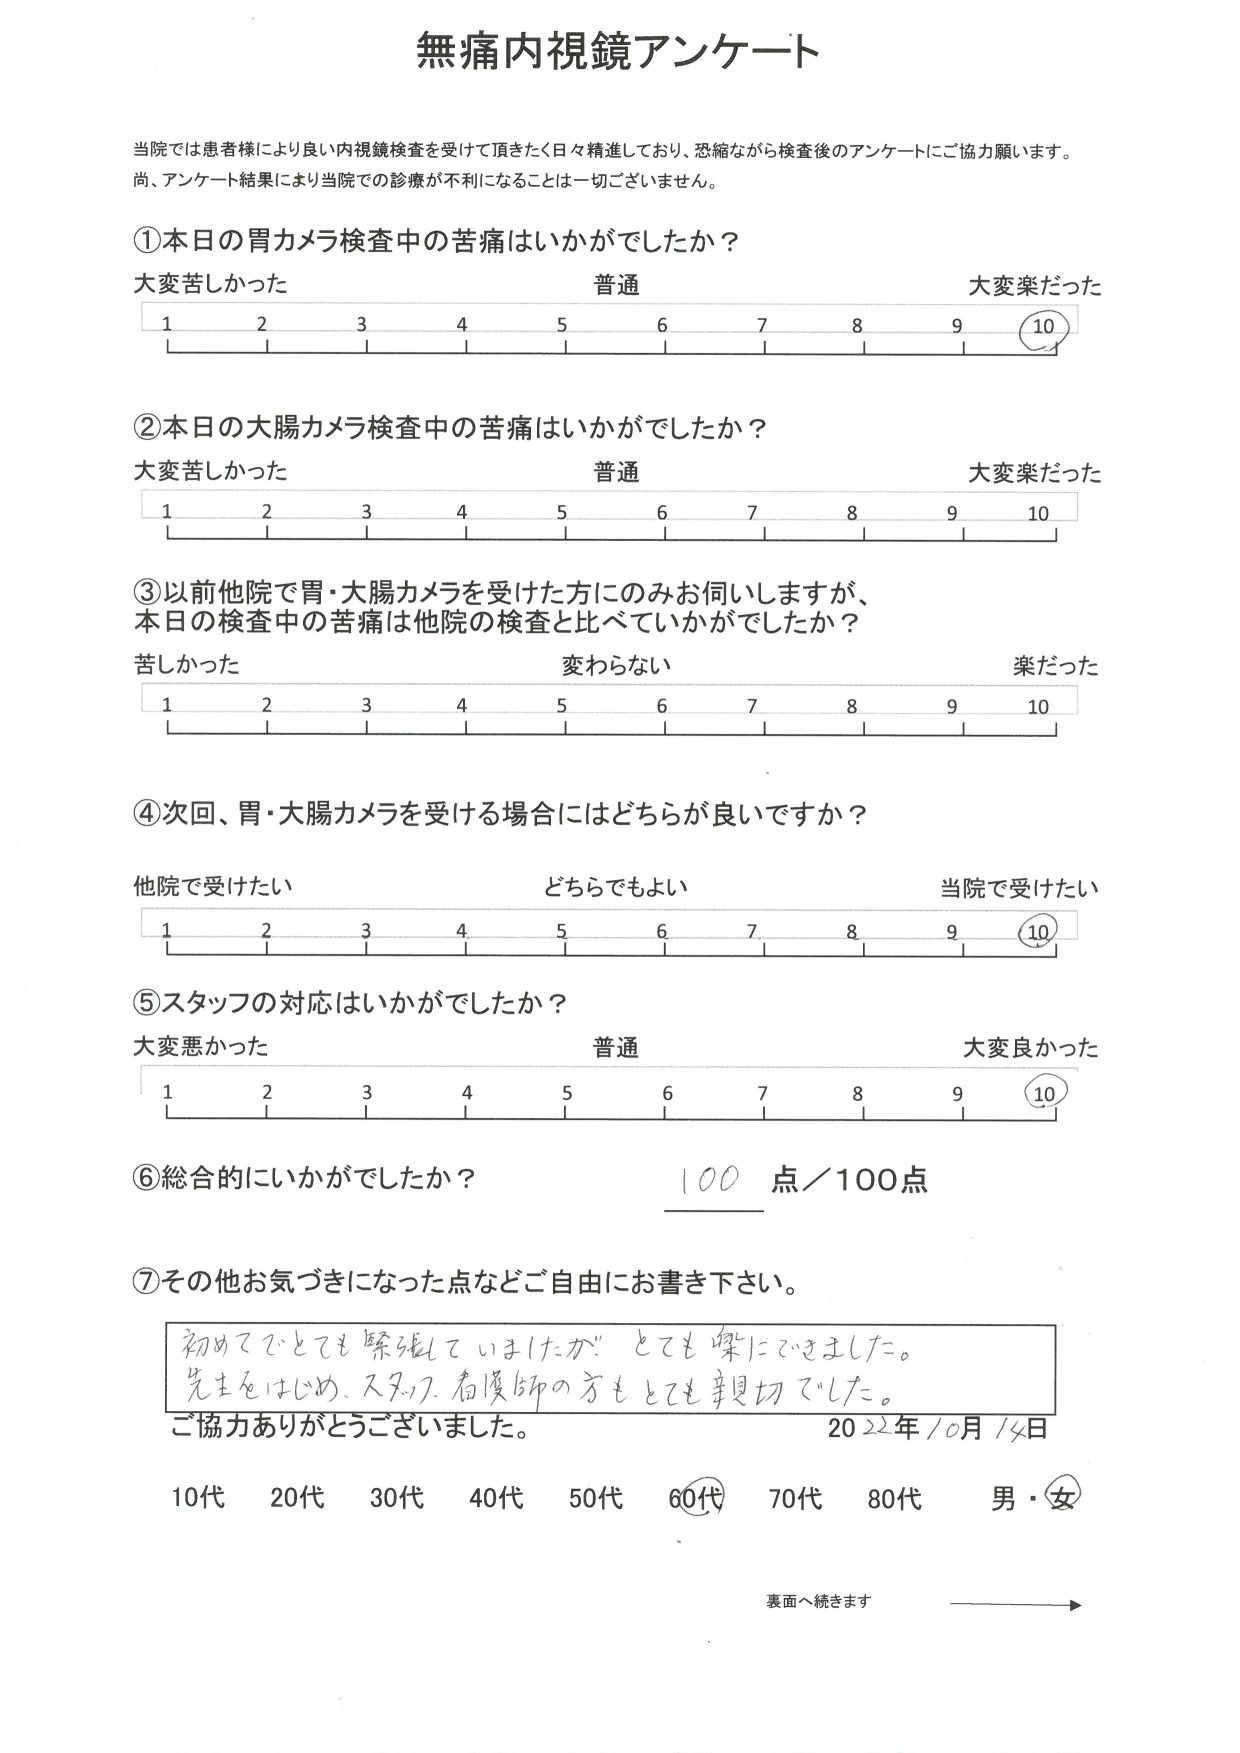 無痛内視鏡アンケート
当院では患者様により良い内視鏡検査を受けて頂きたく日々精進しており、恐縮ながら検査後のアンケートにご協力願います。
尚、アンケート結果により当院での診療が不利になることは一切ございません。
①本日の胃カメラ検査中の苦痛はいかがでしたか？
大変苦しかった 普通 大変楽だった
1 2 3 4 5 6 7 8 9 10
②本日の大腸カメラ検査中の苦痛はいかがでしたか？
大変苦しかった 普通 大変楽だった
1 2 3 4 5 6 7 8 9 10
③以前他院で胃・大腸カメラを受けた方にのみお伺いしますが、
本日の検査中の苦痛は他院の検査と比べていかがでしたか？
苦しかった 変わらない 楽だった
1 2 3 4 5 6 7 8 9 10
④次回、胃・大腸カメラを受ける場合にはどちらが良いですか？
他院で受けたい どちらでもよい 当院で受けたい
1 2 3 4 5 6 7 8 9 10
⑤スタッフの対応はいかがでしたか？
大変悪かった 普通 大変良かった
1 2 3 4 5 6 7 8 9 10
⑥総合的にいかがでしたか？ 100 点／100点
⑦その他お気づきになった点などご自由にお書き下さい。
初めてでとても緊張していましたが とても楽にできました。
先生をはじめ、スタッフ、看護師の方もとても親切でした。
ご協力ありがとうございました。 2022年10月14日
10代 20代 30代 40代 50代 60代 70代 80代 男・女
裏面へ続きます